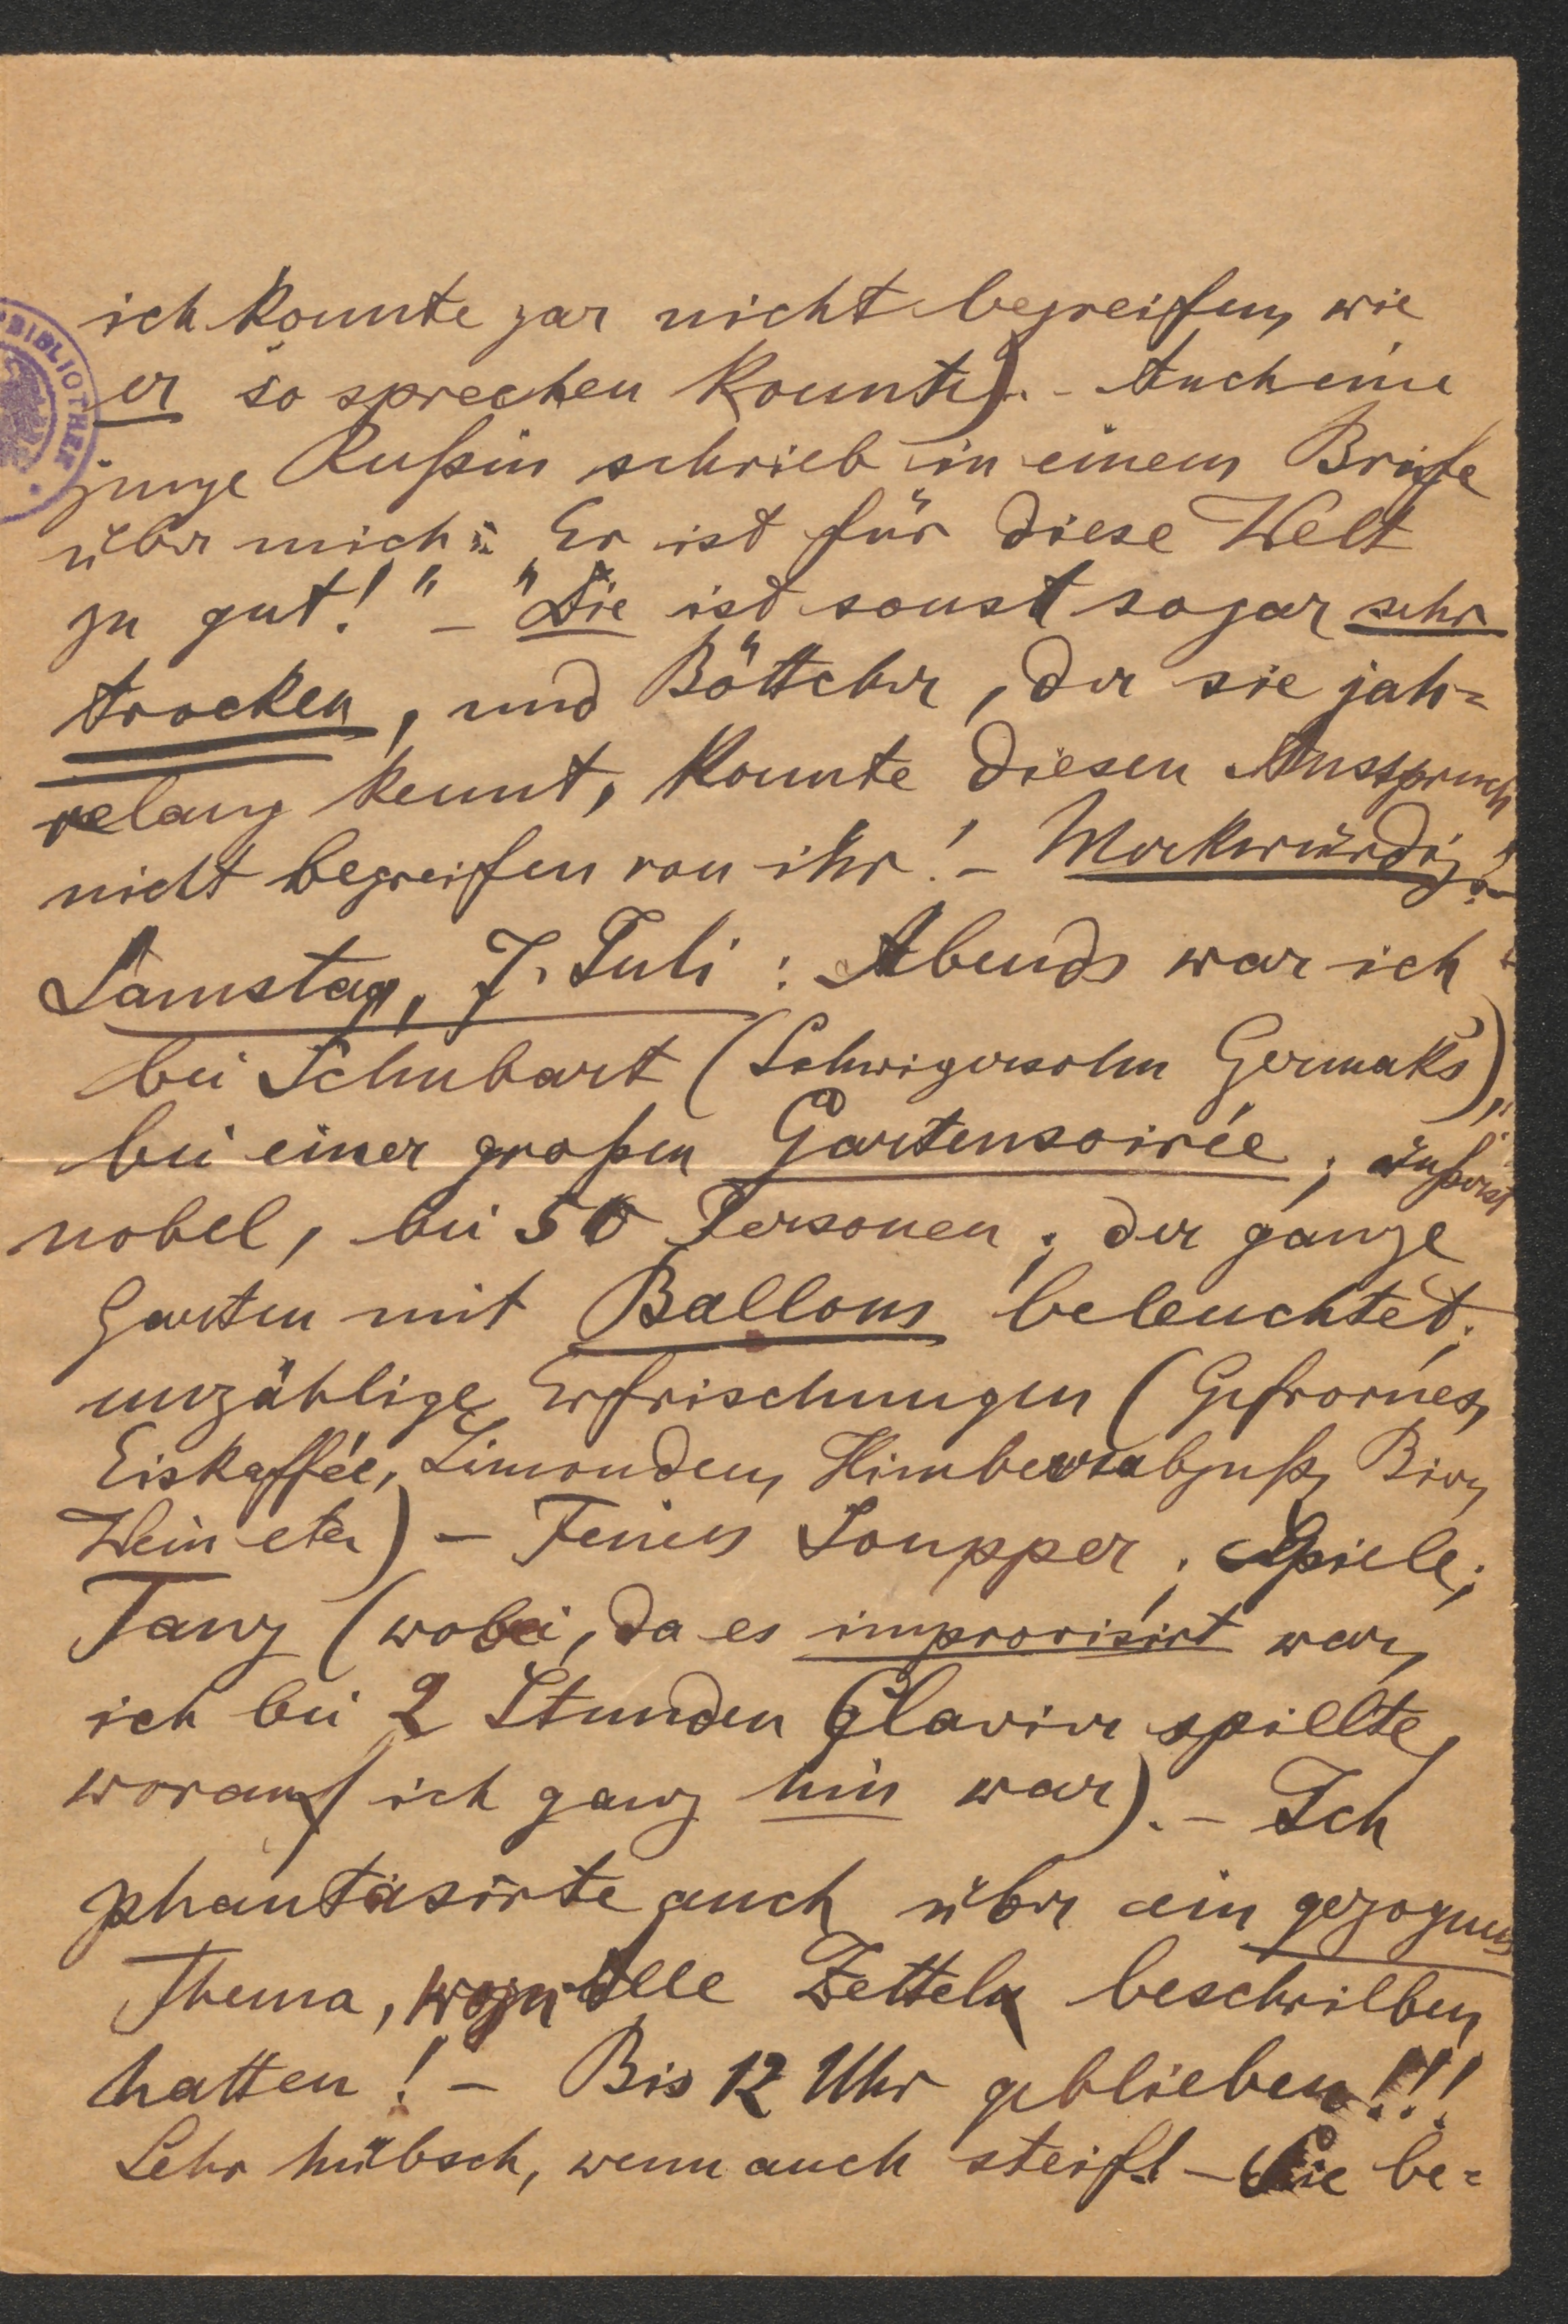 ich konnte gar nicht begreifen, wie
er so sprechen konnte). – Auch eine
junge Rußin schrieb in einem Briefe
über mich: „Er ist für diese Welt
zu gut!" – "Die ist sonst sogar sehr
trocken, und Böttcher, der sie jah-
relang kennt, konnte diesen Ausspruch
nicht begreifen von ihr! – Merkwürdig! –
Samstag, 7. Juli: Abends war ich
bei Schubart (Schwigersohn Germaks),
bei einer großen Gartensoirée; äußerst
nobel, bei 50 Personen; der ganze
Garten mit Ballons beleuchtet;
unzählige Erfrischungen (Gefrornes,
Eiskaffée, Limonden, Himberrabguß, Bier,
Wein etc) – Feines Soupper; Spiele;
Tanz (wobei, da es improvisirt war,
ich bei 2 Stunden Clavier spielte,
worauf ich ganz hin war). – Ich
phantasirte auch über ein gezognes
Thema, wozu Alle Zetteln beschrieben
hatten! – Bis 12 Uhr geblieben!!!
Sehr hübsch, wenn auch steif! – Sie be-
BIBLIOTHEK